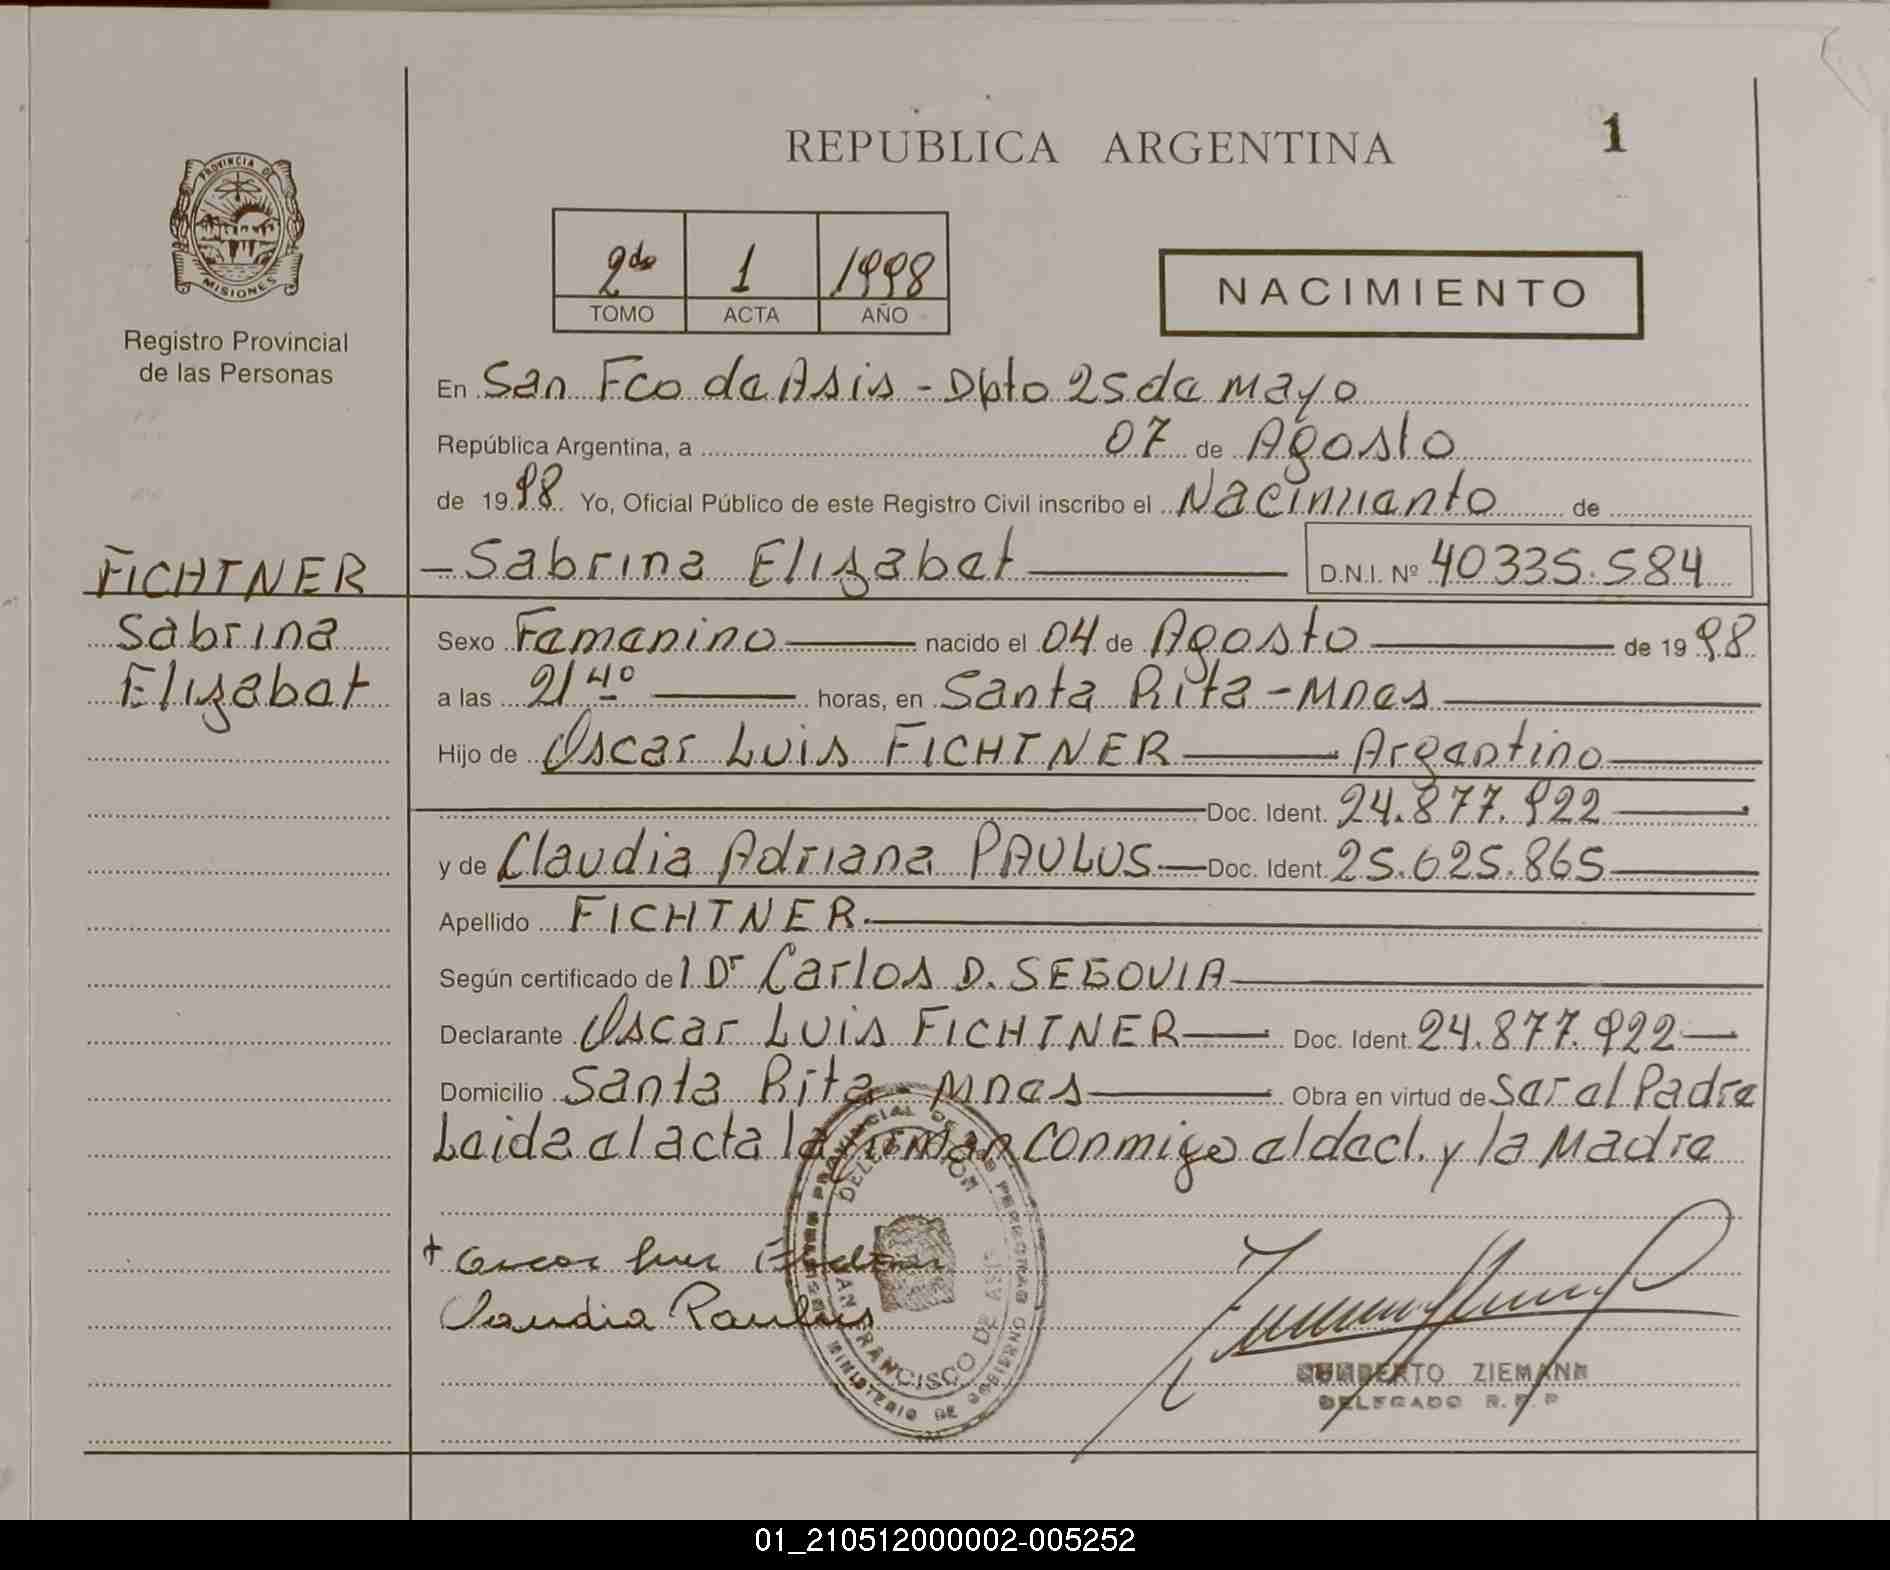 REPUBLICA ARGENTINA
1
PROVINCIA DE
MISIONES
Registro Provincial
de las Personas
2do 1 1998
TOMO ACTA AÑO
NACIMIENTO
En San Fco de Asis - Dpto 25 de Mayo
República Argentina, a 07 de Agosto
de 1998 Yo, Oficial Público de este Registro Civil inscribo el Nacimiento de
FICHTNER
Sabrina
Elizabet
Sabrina Elizabet D.N.I. Nº 40335.584
Sexo Femenino nacido el 04 de Agosto de 1998
a las 21 40 horas, en Santa Rita - Mnes
Hijo de Oscar Luis FICHTNER Argentino
Doc. Ident. 24.877.922
y de Claudia Adriana PAULUS Doc. Ident. 25.625.865
Apellido FICHTNER
Según certificado del Dr Carlos D. SEGOVIA
Declarante Oscar Luis FICHTNER Doc. Ident. 24.877.922
Domicilio Santa Rita - Mnes Obra en virtud de Ser el Padre
Leida el acta la firman conmigo el decl. y la Madre
Oscar Luis Fichtner
Claudia Paulus
DELEGACION
SAN FRANCISCO DE ASIS
MINISTERIO DE
HUMBERTO ZIEMANN
DELEGADO R.P.P
01_210512000002-005252